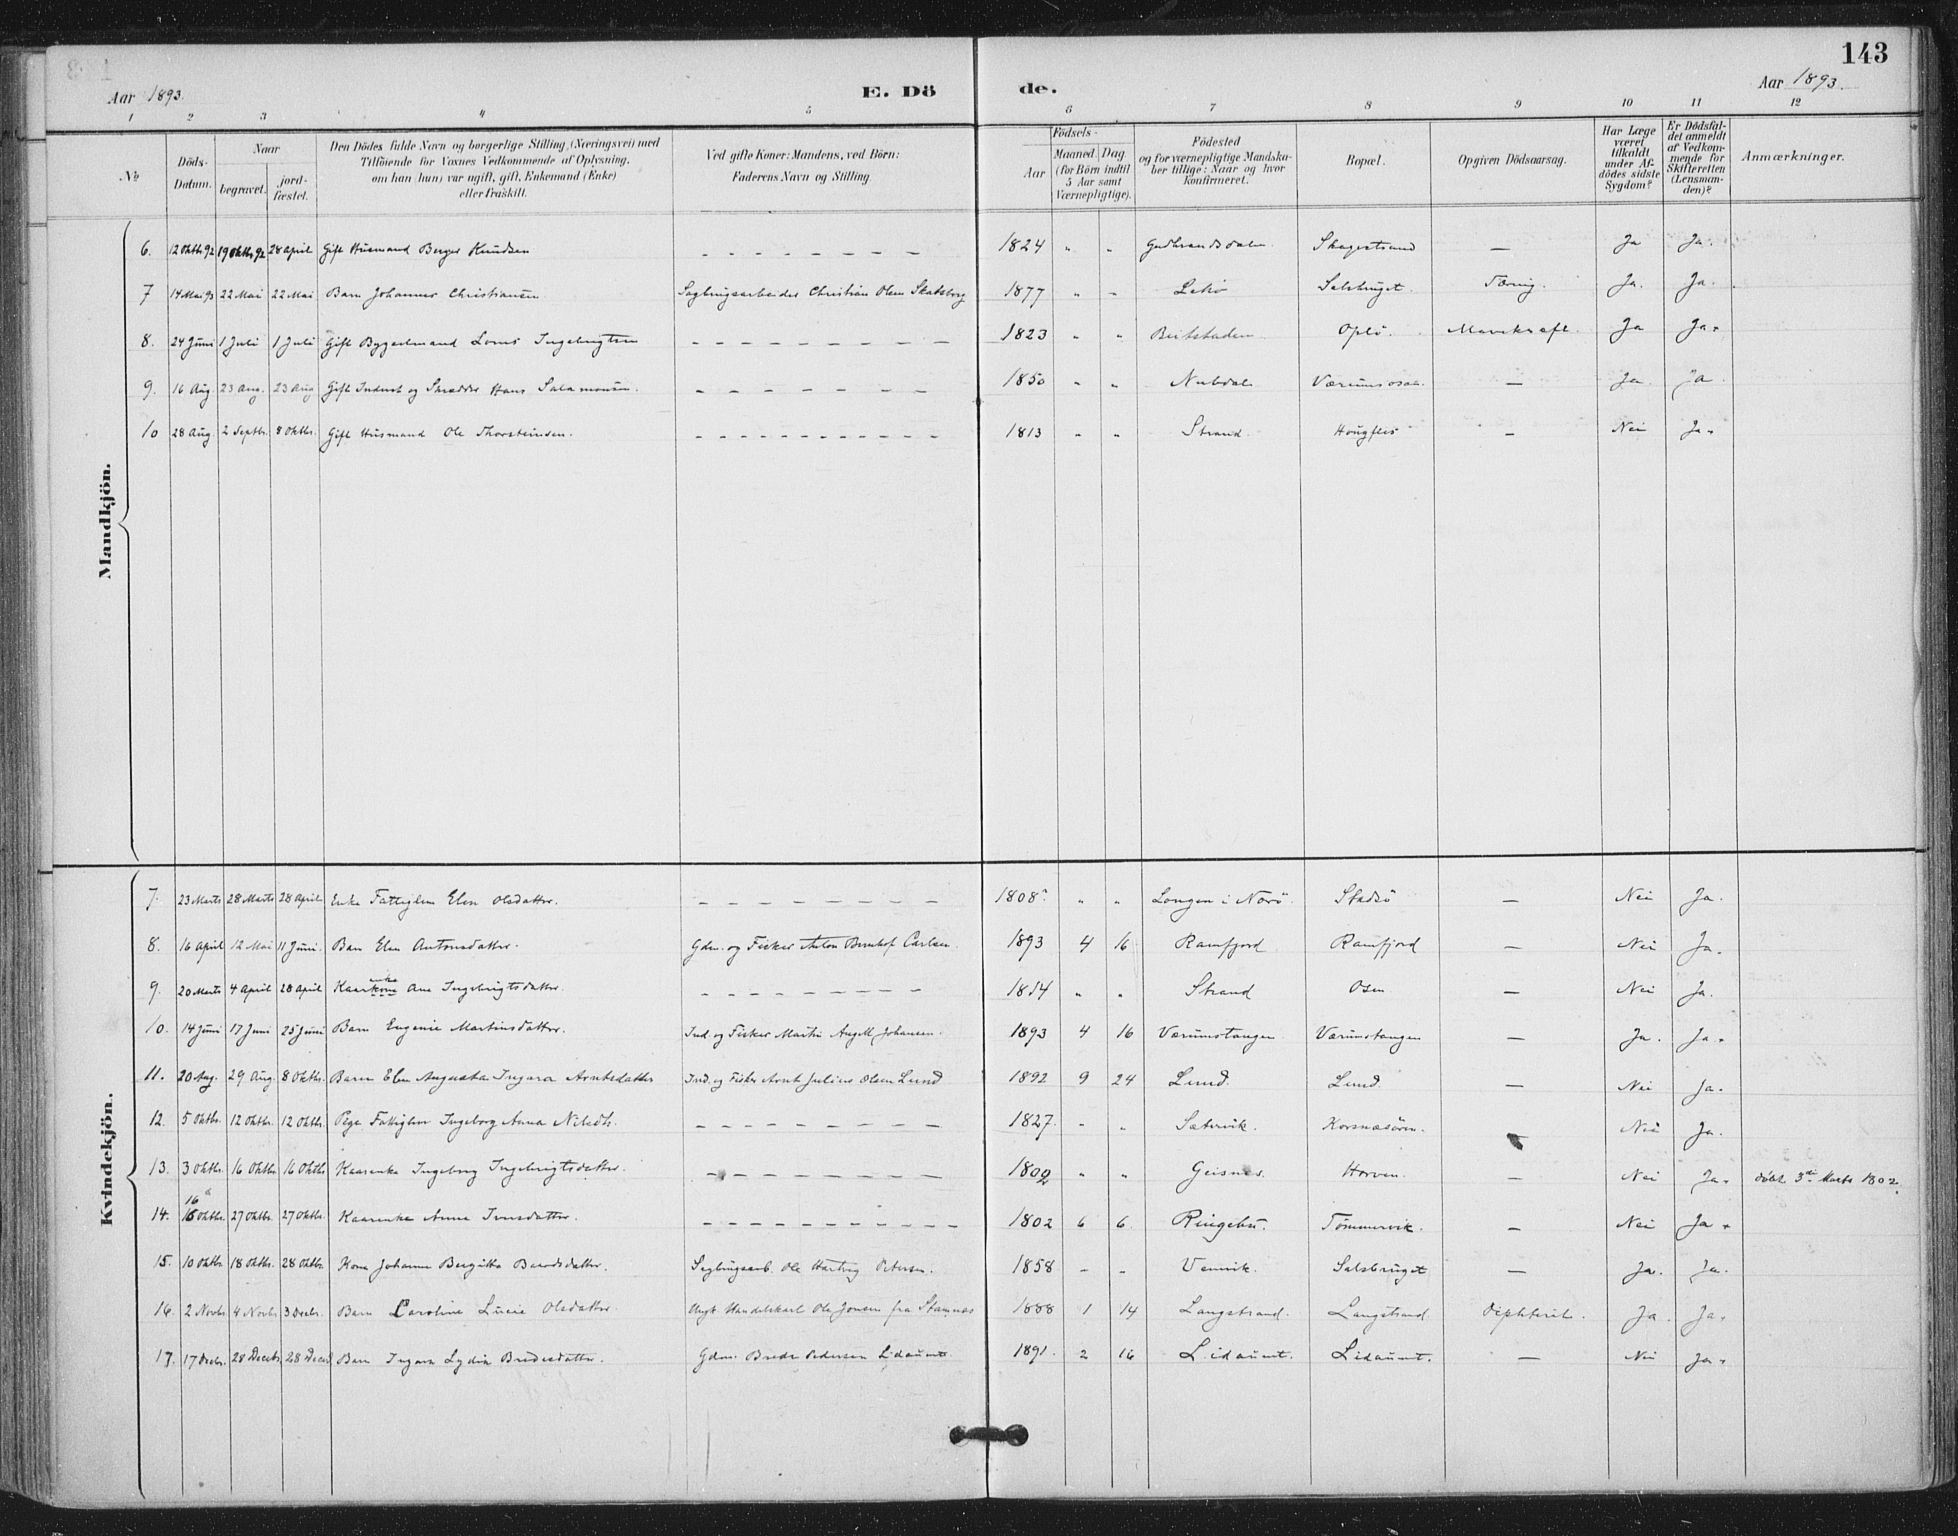 143
Aar 1893. E. Dö de. Aar 1893.
1 2 3 4 5 6 7 8 9 10 11 12
No
Döds-Datum.
Naar
begravet.
jordfæstet.
Den Dödes fulde Navn og borgerlige Stilling (Næringsvei) med Tilföiende for Voxnes Vedkommende af Oplysning, om han (hun) var ugift, gift, Enkemand (Enke) eller fraskilt.
Ved gifte Koner: Mandens, ved Börn: Faderens Navn og Stilling
Födsels-
Aar
Maaned Dag
(for Börn indtil 5 Aar samt Værnepligtige).
Födested og for værnepligtige Mandskaber tillige: Naar og hvor konfirmeret.
Bopæl.
Opgiven Dödsaarsag.
Har Læge været tilkaldt under Afdödes sidste Sygdom?
Er Dödsfaldet anmeldt af Vedkommende for Skifteretten (Lensmanden)?
Anmærkninger.
Mandkjön.
6. 12 Oktb 92 19 Oktb 92 28 April Gift Husmand Berger Knudsen – – – 1824 " " Gudbrandsdalen Skagestrand — Ja Ja.
7 14 Mai 93 22 Mai 22 Mai Barn Johannes Christiansen Sagbrugsarbeider Christian Olsen Skatsborg 1877 " " Lekø Salsbruget. Tæring. Ja. Ja.
8. 24 Juni 1 Juli 1 Juli Gift Bygselmand Lorns Ingebrigtsen – – – 1823 " " Beitstaden Oplø. Mavekræft. Ja Ja.
9. 16 Aug. 23 Aug. 23 Aug Gift Inderst og Skrædder Hans Salamonsen. – – – 1850 " " Nubdal Værumsosen — Ja. Ja.
10 28 Aug. 2 Septbr. 8 Oktbr. Gift Husmand Ole Thorsteinsen. – – – 1813 " " Strand. Hougfles — Nei Ja.
Kvindekjön.
7. 23 Marts 28 Marts 28 April Enke Fattiglem Elen Olsdatter. – – – 1808 " " i Nærö Stadsö — Nei Ja.
8. 16 April 12 Mai 11 Juni. Barn Elen Antonsdatter. Gdm. og Fisker Anton Carlsen. 1893 4 16 Ramfjord Ramfjord — Nei Ja.
9. 20 Marts 4 April 28 April Kaarkone enke Ane Ingebrigtsdatter. – – – 1814 " " Strand Osen — Nei Ja.
10. 14 Juni 17 Juni 25 Juni Barn Eugenie Martinsdatter. Ind. og Fisker Martin Angell Johansen. 1893 4 16 Værumstangen Værumstangen — Ja. Ja.
11. 20 Aug. 29 Aug. 8 Oktbr. Barn Elen Augusta Ingara Arntsdatter Ind. og Fisker Arnt Julius Olsen Lund 1892 9 24 Lund. Lund. — Nei Ja.
12. 5 Oktbr. 12 Oktbr. 12 Oktbr. Pige Fattiglem Ingeborg Anna Nilsdtr. – – – 1827. " " Sætervik. Korsnæsören. — Nei Ja.
13. 3 Oktbr. 16 Oktbr. 16 Oktbr Kaarenke Ingeborg Ingebrigtsdatter. – – – 1802 " " Geisnes. Horven. — Nei Ja. døbt 3die Marts 1802.
14. 16 Oktbr. 27 Oktbr. 27 Oktbr. Kaarenke Anne Iversdatter. – – – 1802 6 6. Ringebu. Tömmervik. — Nei Ja.
15. 10 Oktbr 18 Oktbr. 28 Oktbr. Kone Johanna Bergitta Baardsdatter. Sagbrugsarb. Ole Hartvig Petersen. 1858 " " Vennvik. Salsbruget — Ja. Ja.
16. 2 Novbr. 4 Novbr. 3 Decbr. Barn Caroline Lucie Olsdatter Ungk. Handelskarl Ole Jonsen fra Stamnæs 1888 1 14 Langstrand. Langstrand Diphterit. Ja. Ja.
17. 17 Decbr. 28 Decbr. 28 Decbr Barn Ingara Lydia Bredesdatter. Gdm. Brede Pedersen Lidaunet 1891. 2 16 Lidaunet. Lidaunet. — Nei Ja.